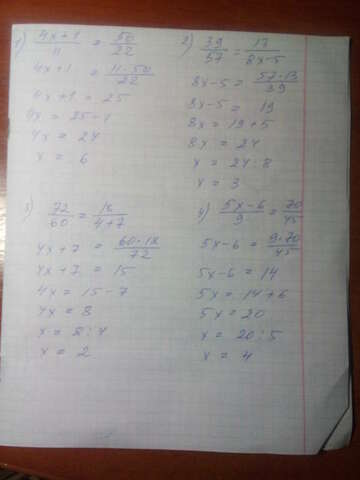 1) (4x+1)/11 = 50/22
4x+1 = (11·50)/22
4x+1 = 25
4x = 25-1
4x = 24
x = 6
2) 39/57 = 13/(8x-5)
8x-5 = (57·13)/39
8x-5 = 19
8x = 19+5
8x = 24
x = 24:8
x = 3
3) 72/60 = 18/(4+7)
4x+7 = (60·18)/72
4x+7 = 15
4x = 15-7
4x = 8
x = 8:4
x = 2
4) (5x-6)/9 = 70/45
5x-6 = (9·70)/45
5x-6 = 14
5x = 14+6
5x = 20
x = 20:5
x = 4